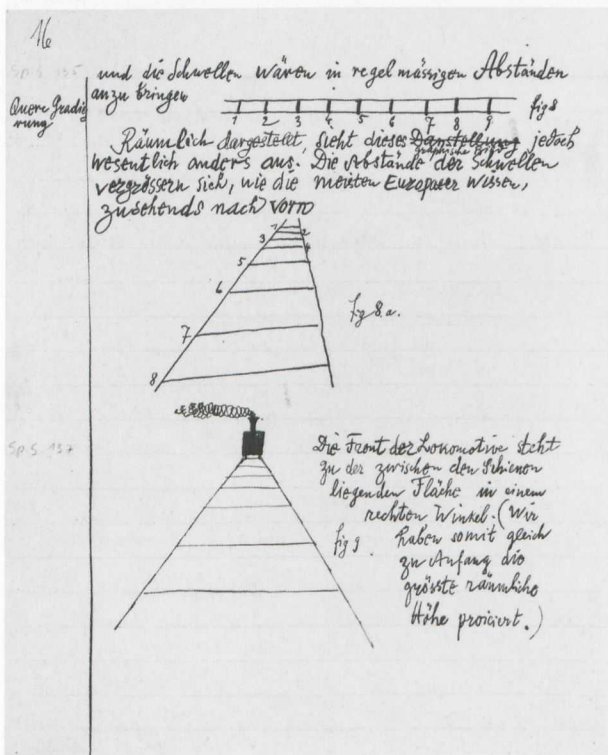 16
Sp. S. 135
und die Schwellen wären in regelmässigen Abständen
anzubringen
Quere Gradie
rung
1 2 3 4 5 6 7 8 9
fig 8
Räumlich dargestellt, sieht dieses Darstellung jedoch
wesentlich anders aus. Die Abstände der Schwellen
vergrössern sich, wie die meisten Europäer wissen,
zusehends nach vorn
1
2
3
4
5
6
7
8
fig 8.a.
Sp S. 137
Die Front der Lokomotive steht
zu der zwischen den Schienen
liegenden Fläche in einem
rechten Winkel. (Wir
fig 9
haben somit gleich
zu Anfang die
grösste räumliche
Höhe proiciert.)